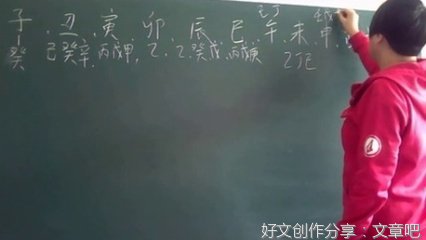 子、丑、寅、卯、辰、巳、午、未、申、
癸 己癸辛、丙戊甲、乙、乙癸戊、丙戊庚 己丁 乙丁己
好文创作分享：文章吧